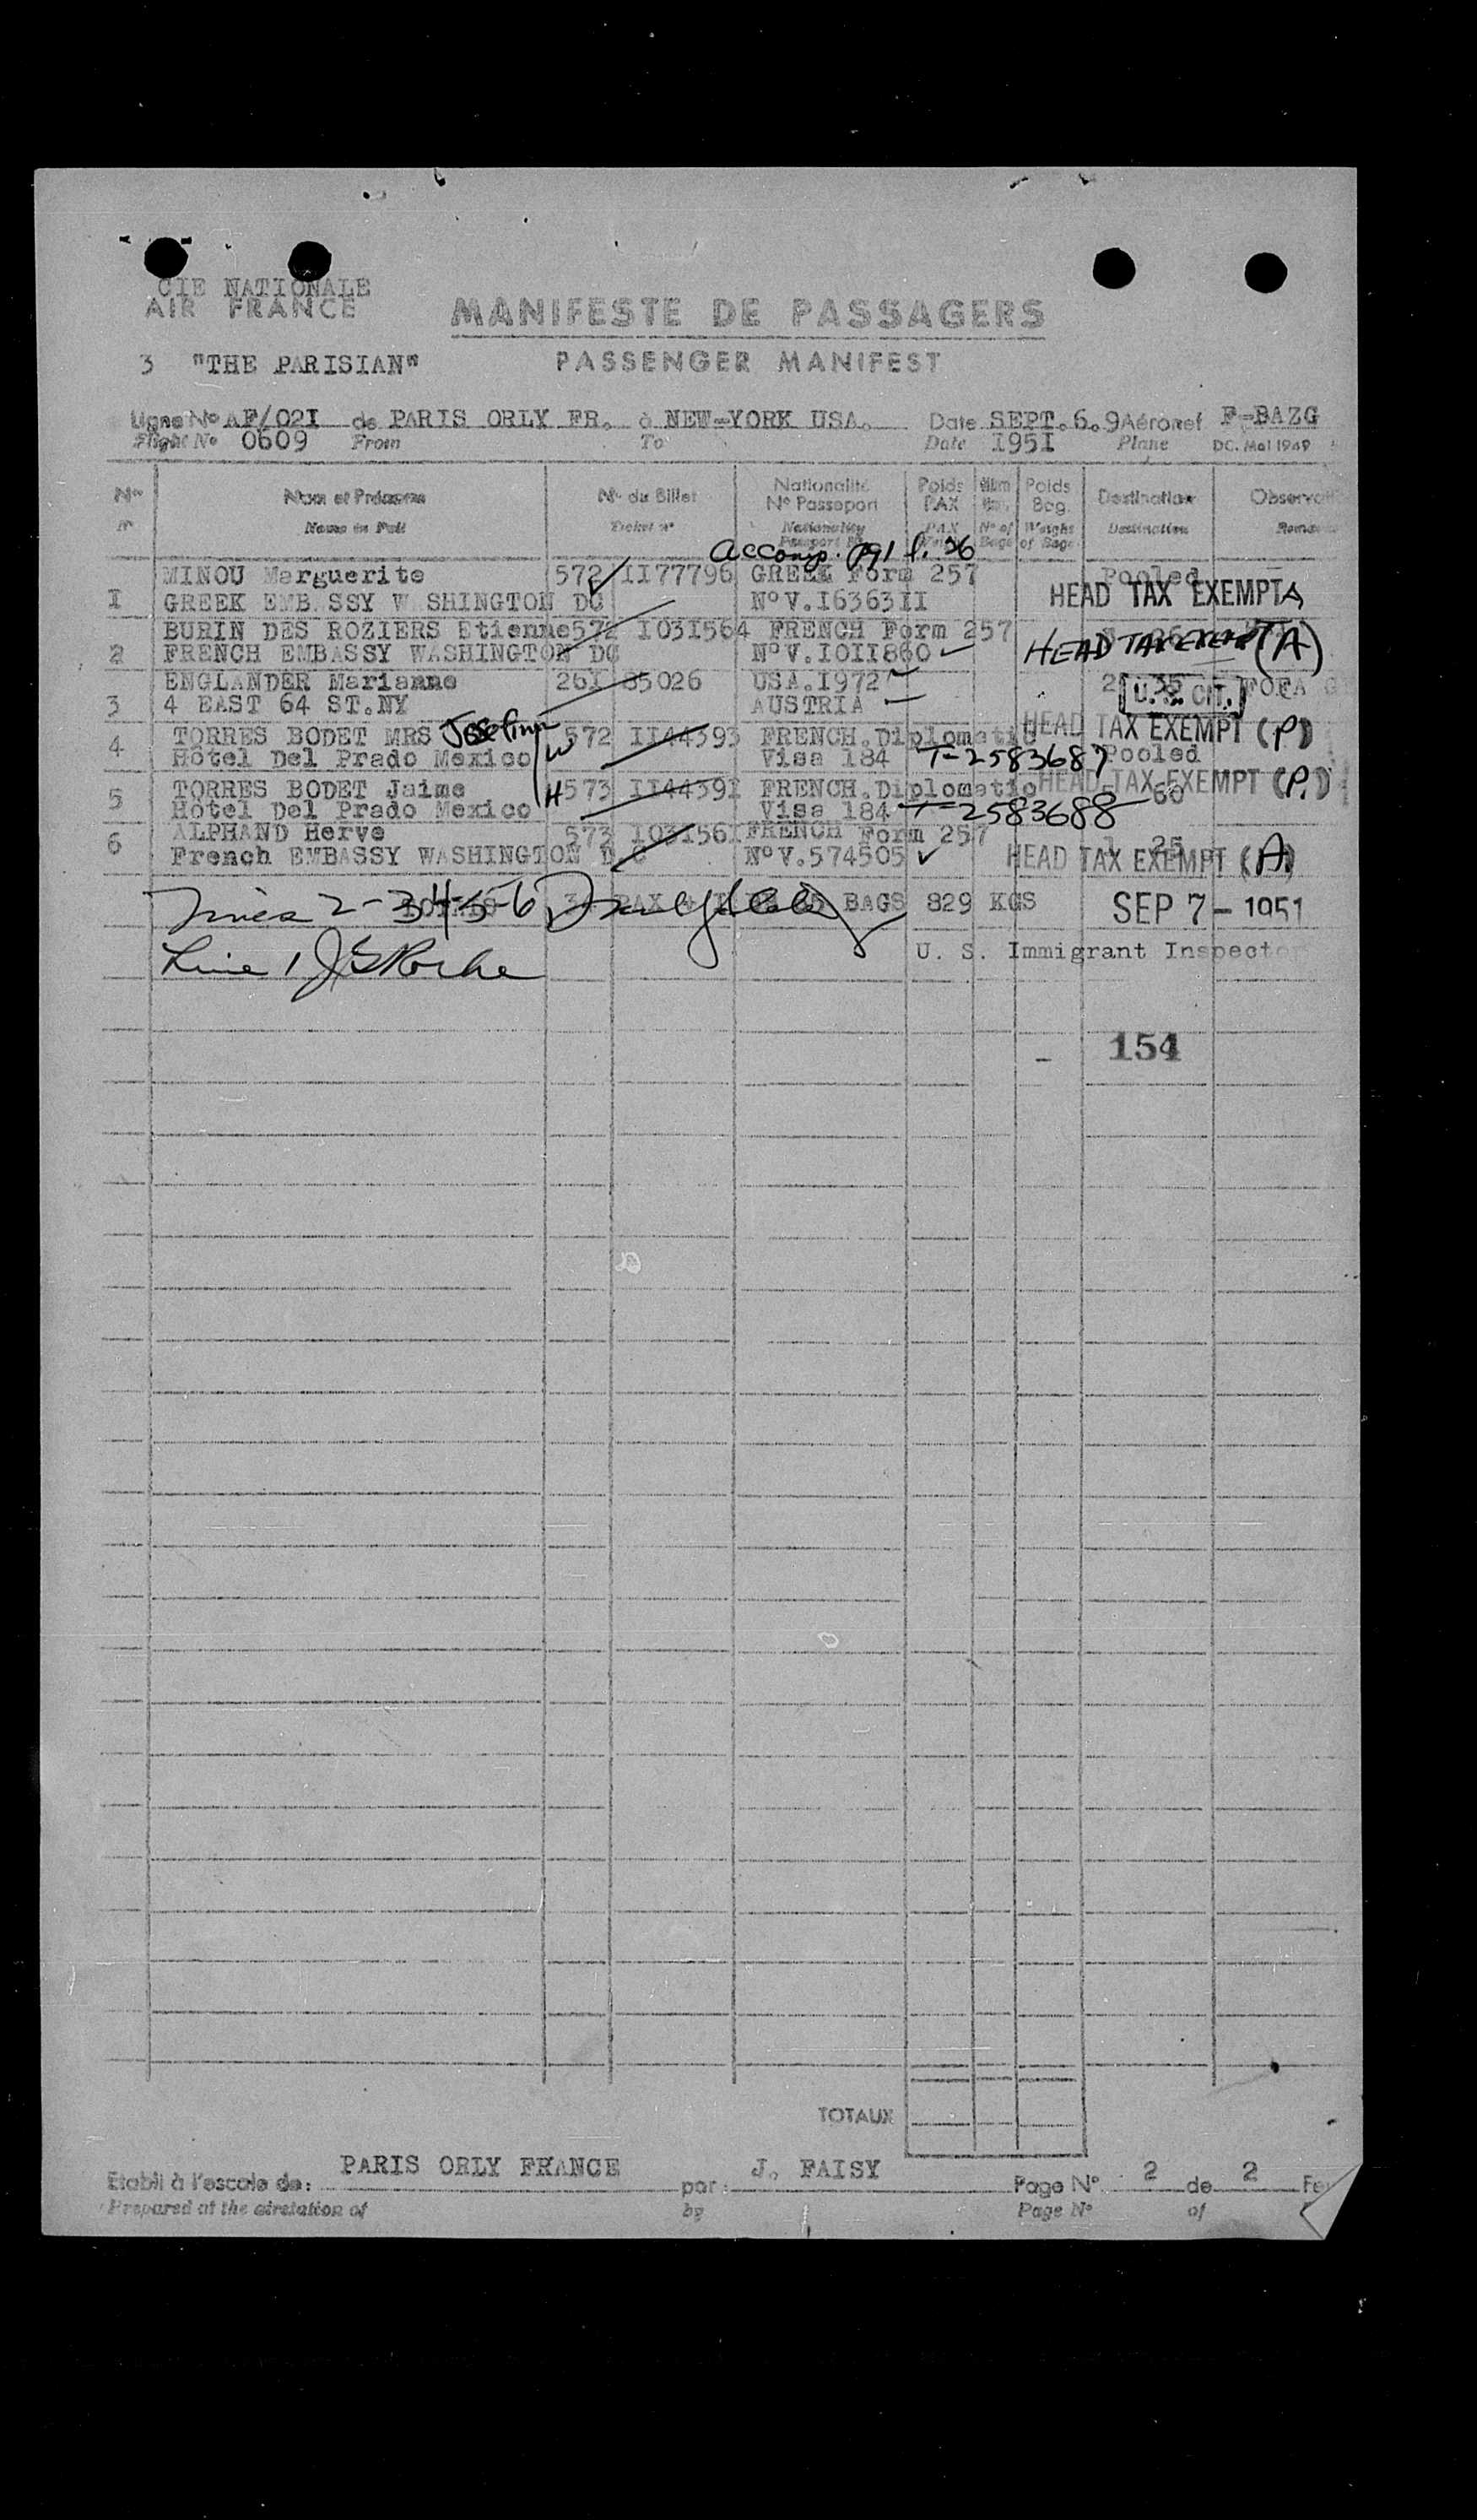 CIE NATIONALE
AIR FRANCE
MANIFESTE DE PASSAGERS
3 "THE PARISIAN" PASSENGER MANIFEST
Ligne No AF/02I de PARIS ORLY FR. à NEW-YORK USA. Date SEPT.6.9 Aéronef F-BAZG
Flight No 0609 From To Date 195I Plane DC. Mol 1949
No Nom et Prénoms No du Billet Nationalité No Passeport Poids PAX Poids Bag. Destination Observati
No Name in Full Ticket no Nationality Passport No PAX No of Bags Weight of Bags Destination Remar
accomp. pg 1 l. 26
MINOU Marguerite 572 II77796 GREEK Form 257 Pooled
I GREEK EMB SSY W SHINGTON DC No V.I6363II HEAD TAX EXEMPT A
BURIN DES ROZIERS Etienne 572 I03I564 FRENCH Form 257
2 FRENCH EMBASSY WASHINGTON DC No V.I0II860 HEAD TAX EXEMPT (A)
ENGLANDER Marianne 26I 85026 USA.I972
3 4 EAST 64 ST.NY AUSTRIA U.S. CIT.
HEAD TAX EXEMPT (P)
4 TORRES BODET MRS Josefina 572 II44393 FRENCH.Diplomatic
Hotel Del Prado Mexico W Visa I84 T-2583687 Pooled
HEAD TAX EXEMPT (P.)
5 TORRES BODET Jaime H 573 II4439I FRENCH.Diplomatic 5 60
Hotel Del Prado Mexico Visa I84 T-2583688
ALPHAND Herve 573 I03I56I FRENCH Form 257
6 French EMBASSY WASHINGTON D C No V.574505 HEAD TAX EXEMPT (A)
2-3-4-5-6 PAX BAGS 829 KGS SEP 7 - 1951
Line 1 U. S. Immigrant Inspector
- 154
TOTAUX
Etabli à l'escale de: PARIS ORLY FRANCE par: J. FAISY Page No 2 de 2 Fe
Prepared at the airstation of by Page No of